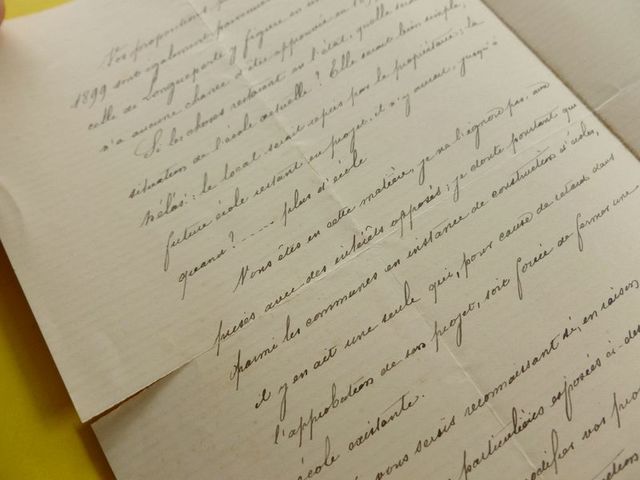 Vos propositions
1899 sont également parvenues
celle de Longueperte y figure en
n'a aucune chance d'être approuvée en
Si les choses restaient en l'état, quelle
situation de l'école actuelle ? Elle serait bien simple,
hélas : le local serait repris par le propriétaire ; la
future école restant en projet, il n'y aurait, jusqu'à
quand ? ..... plus d'école
Vous êtes en cette matière, je ne l'ignore pas, aux
prises avec des intérêts opposés ; je doute pourtant que
parmi les communes en instance de construction d'écoles,
il y en ait une seule qui, pour cause de retard dans
l'approbation de son projet, soit forcée de fermer une
école existante.
vous serais reconnaissant si, en raison
particulières exposées ci-des
modifier vos pro